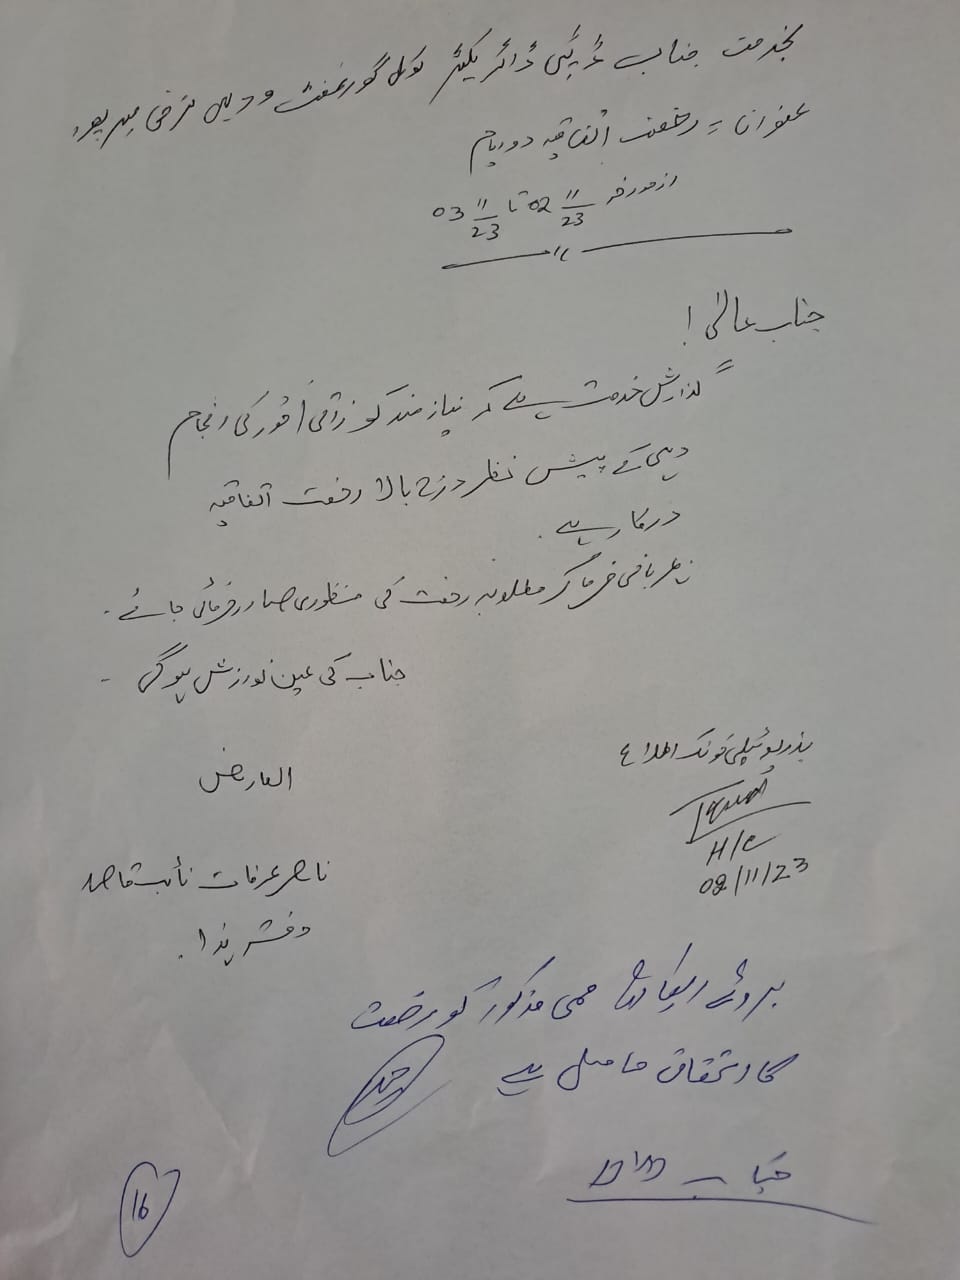 بخدمت جناب ڈپٹی ڈائریکٹر لوکل گورنمنٹ و دیہی ترقی میرپور
عنوان = رخصت اتفاقیہ دو یوم
ازمورخہ 02 11/23 تا 03 11/23
جناب عالی!
گذارش خدمت ہے کہ نیازمند کو ذاتی امور کی انجام
دہی کے پیش نظر درج بالا رخصت اتفاقیہ
درکار ہے.
مہربانی فرما کر مطلوبہ رخصت کی منظوری صادر فرمائی جائے۔
جناب کی عین نوازش ہوگی ۔
بذریعہ ٹیلی فونک اطلاع
H/C
02/11/23
العارض
ناصر عرفات نائب قاصد
دفتر ہذا.
بروئے ریکارڈ مسمی مذکور کو رخصت
کا استحقاق حاصل ہے
جناب
16